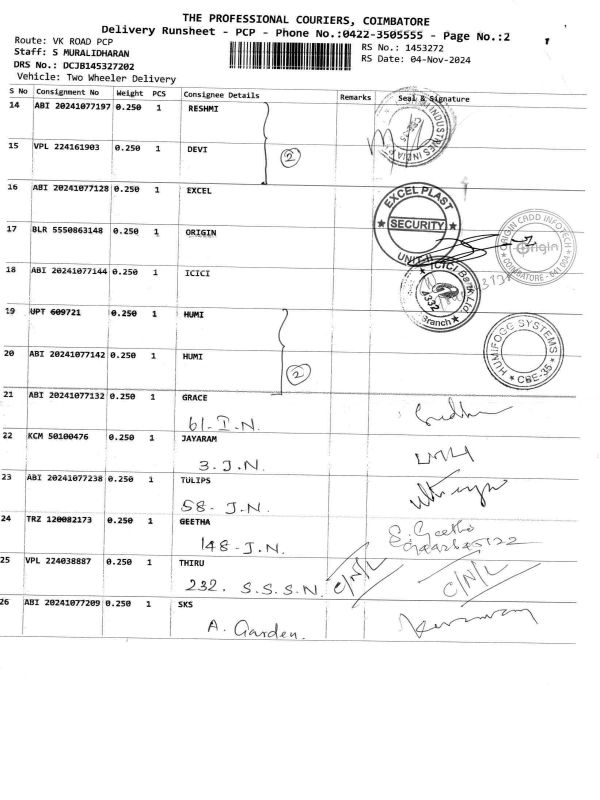 THE PROFESSIONAL COURIERS, COIMBATORE
Delivery Runsheet - PCP - Phone No.:0422-3505555 - Page No.:2
Route: VK ROAD PCP
RS No.: 1453272
Staff: S MURALIDHARAN
RS Date: 04-Nov-2024
DRS No.: DCJB145327202
Vehicle: Two Wheeler Delivery
S No Consignment No Weight PCS Consignee Details Remarks Seal & Signature
14 ABI 20241077197 0.250 1 RESHMI
15 VPL 224161903 0.250 1 DEVI
2
16 ABI 20241077128 0.250 1 EXCEL
EXCEL PLAST
SECURITY
UNIT-II
17 BLR 5550863148 0.250 1 ORIGIN
ORIGIN CADD INFOTECH
Origin
COIMBATORE - 641 004
18 ABI 20241077144 0.250 1 ICICI
ICICI Bank Ltd
4332
Branch
19 UPT 609721 0.250 1 HUMI
HUMIFOGG SYSTEMS
CBE-35
20 ABI 20241077142 0.250 1 HUMI
2
21 ABI 20241077132 0.250 1 GRACE
61. I. N.
22 KCM 50100476 0.250 1 JAYARAM
3. J.N.
23 ABI 20241077238 0.250 1 TULIPS
58. J.N.
24 TRZ 120082173 0.250 1 GEETHA
148 - J.N.
Geetha
25 VPL 224038887 0.250 1 THIRU
232. S.S.S.N. C/N/L C/N/L
26 ABI 20241077209 0.250 1 SKS
A. Garden.